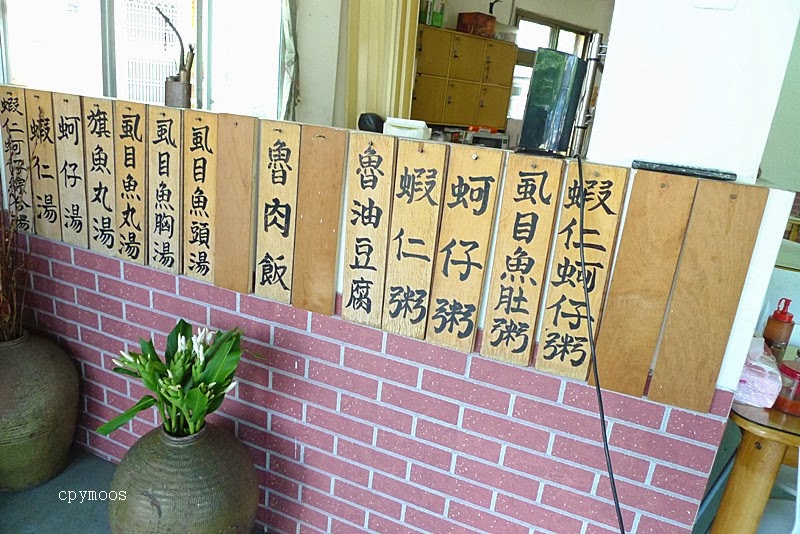 蝦仁蚵仔粥
虱目魚肚粥
蚵仔粥
蝦仁粥
魯油豆腐
魯肉飯
虱目魚頭湯
虱目魚胸湯
虱目魚丸湯
旗魚丸湯
蚵仔湯
蝦仁湯
蝦仁蚵仔湯
cpymoos